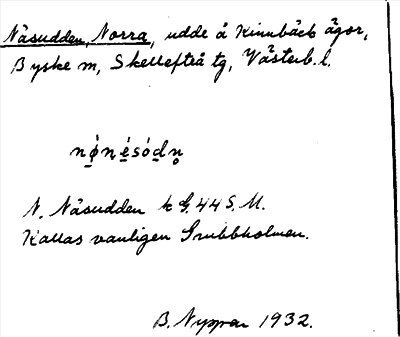 Näsudden, Norra, udde å Kinnbäcks ägor,
Byske sn, Skellefteå tg, Västerb. l.
nǿnésódn̥
N. Näsudden k G. 44 S. M.
Kallas vanligen Grubbholmen.
B. Nyman 1932.